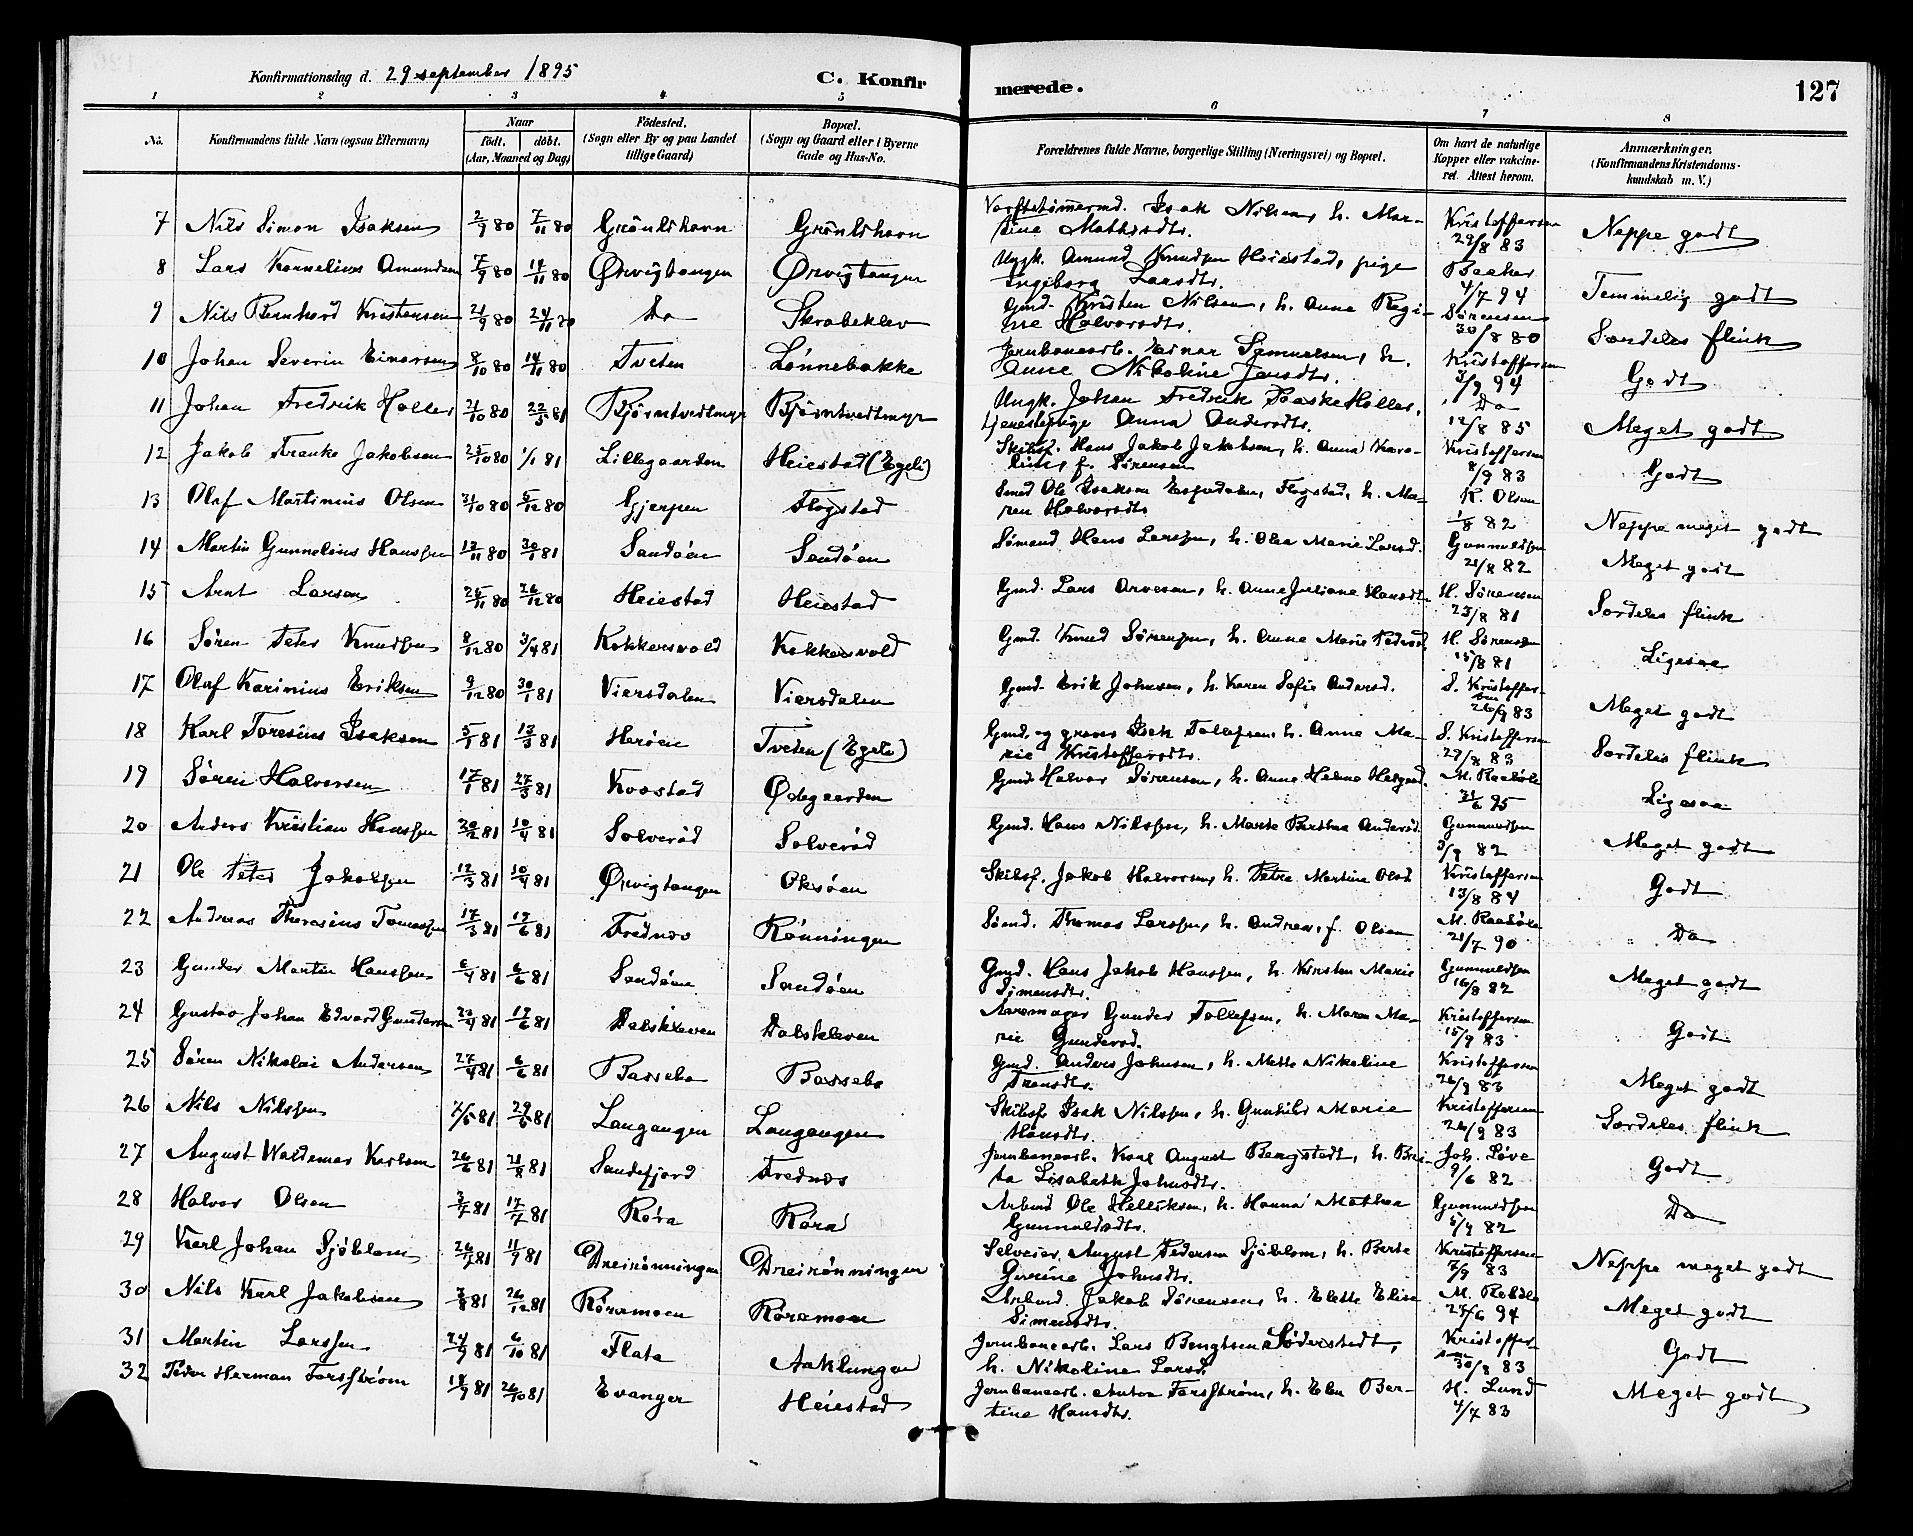 Konfirmationsdag d. 29 september 1895 C. Konfirmerede. 127
1 2 3 4 5 6 7 8
No. Konfirmandens fulde Navn (ogsaa Efternavn) Naar födt. döbt. (Aar, Maaned og Dag) Födested. (Sogn eller By og paa Landet tillige Gaard) Bopæl. (Sogn og Gaard eller i Byerne Gade og Hus-No. Forældrenes fulde Navne, borgerlige Stilling (Næringsvei) og Bopæl. Om havt de naturlige Kopper eller vakcineret. Attest herom. Anmærkninger. (Konfirmandens Kristendomskundskab m. V.)
7 Nils Simon Isaksen 2/9 80 7/11 80 Grønlihavn Grønlihavn Værftstømermd. Isak Nilsen, h. Martine Mathisdtr. Kristoffersen 29/8 83 Neppe godt
8 Lars Kornelius Amundsen 7/9 80 14/11 80 Ørvigtangen Ørvigtangen Ungk. Amund Knudsen Heiestad, pige Ingeborg Larsdtr. Baaker 4/7 94 Temmelig godt
9 Nils Bernhard Kristensen 21/9 80 24/11 80 Do Skrabeklev Gmd. Kristen Nilsen, h. Anne Regine Halvorsdtr. Sørensen 30/8 80 Særdeles flink
10 Johan Severin Einarsen 8/10 80 14/11 80 Tveten Lønnebakke Jernbanearb. Einar Samuelsen, h. Anne Nikoline Jansdtr. Kristoffersen 3/9 94 Godt
11 Johan Fredrik Holler 21/10 80 22/5 81 Bjørntvedtmyr Bjørntvedtmyr Ungk. Johan Fredrik Paaske Holler, tjenestepige Anna Andersdtr. Do 12/8 85 Meget godt
12 Jakob Franke Jakobsen 25/10 80 1/1 81 Lillegaarden Heiestad (Egeli) Skibsf. Hans Jakob Jakobsen, h. Anna Karoline, f. Sørensen Kristoffersen 8/9 83 Godt
13 Olaf Martinius Olsen 31/10 80 5/12 80 Gjerpen Flogstad Smed Ole Isaksen Espedalen, Flogstad, h. Maren Halvorsdtr. K. Olsen 1/8 82 Neppe meget godt
14 Martin Gunnelius Hanssen 13/11 80 30/1 81 Sandøen Sandøen Sømand Hans Larssen, h. Olea Marie Larsd. Gunnuldsen 21/8 82 Meget godt
15 Arnt Larsen 25/11 80 26/12 80 Heiestad Heiestad Gmd. Lars Arvesen, h. Anne Juliane Hansdtr. H. Sørensen 23/8 81 Særdeles flink
16 Søren Peter Knudsen 8/12 80 3/4 81 Kokkersvold Kokkersvold Gmd. Knud Sørensen, h. Anne Marie Pedersd. H. Sørensen 15/8 81 Ligesaa
17 Olaf Karinius Eriksen 9/12 80 30/1 81 Viersdalen Viersdalen Gmd. Erik Johnsen, h. Karen Sofie Andersd. S. Kristoffersen 26/9 83 Meget godt
18 Karl Toresius Isaksen 5/1 81 13/3 81 Herøen Tveten (Egeli) Gmd. og graver Isak Tollefsen h. Anne Marie Kristoffersdtr. S. Kristoffersen 29/8 83 Særdeles flink
19 Søren Halvorsen 17/1 81 27/3 81 Kvestad Ødegaarden Gmd. Halvor Sørensen, h. Anne Helene M. Raabøle 21/6 95 Ligesaa
20 Anders Kristian Hanssen 20/2 81 10/4 81 Solverød Solverød Gmd. Hans Nilssen, h. Marte Berthea Andersd. Gunnuldsen 3/9 82 Meget godt
21 Ole Peter Jakobsen 12/3 81 10/4 81 Ørvigtangen Oksøen Skibsf. Jakob Halvorsen, h. Petra Martine Olsd. Kristoffersen 13/8 84 Godt
22 Andreas Theresius Tomassen 17/3 81 19/6 81 Frednæs Rønningen Sømd. Thomas Larssen, h. Andrea, f. Olsen M. Raabøle 21/7 90 Do
23 Gunder Martin Hanssen 6/4 81 6/6 81 Sandøen Sandøen Gmd. Hans Jakob Hanssen, h. Kirsten Marie Simensdtr. Gunnuldsen 16/8 82 Meget godt
24 Gustav Johan Edvard Gundersen 22/4 81 19/6 81 Dalskleven Dalskleven Aaremager Gunder Tollefsen, h. Maren Marie Gundersd. Kristoffersen 15/9 83 Godt
25 Søren Nikolai Andersen 27/4 81 6/6 81 Bassebo Bassebo Gmd. Anders Johnsen, h. Mette Nikoline Fransdtr. Kristoffersen 26/9 83 Meget godt
26 Nils Nilssen 7/5 81 29/6 81 Langangen Langangen Skibsf. Isak Nilssen, h. Gunhild Marie Hansdtr. Kristoffersen 26/9 83 Særdeles flink
27 August Waldemar Karlsen 26/6 81 21/8 81 Sandefjord Frednæs Jernbanearb. Karl August Bengstedt, h. Brita Lisabeth Johnsdtr. Joh. Løve 9/6 82 Godt
28 Halvor Olsen 3/7 81 17/7 81 Røra Røra Arbmd Ole Helliksen, h. Hanna Mathea Gunnuldsdtr. Gunnuldsen 5/9 82 Do
29 Karl Johan Sjöblom 26/7 81 11/9 81 Dreirønningen Dreirønningen Selveier August Pedersen Sjöblom, h. Berte Gurine Johnsdtr. Kristoffersen 7/9 83 Neppe meget godt
30 Nils Karl Jakobsen 3/8 81 26/12 81 Røramoen Røramoen Arbmd. Jakob Sørensen h. Elette Elise Simensdtr. M. Rabøle 27/6 94 Meget godt
31 Martin Larssen 24/9 81 6/10 81 Flata Aaklungen Jernbanearb. Lars Bengtsen Söderstedt, h. Nikoline Larsd. Kristoffersen 30/8 83 Godt
32 Peder Herman Forsstrøm 18/9 81 26/10 81 Evanger Heiestad Jernbanearb. Anton Forsstrøm, h. Elen Bertine Hansdtr. H. Lund 4/7 83 Meget godt